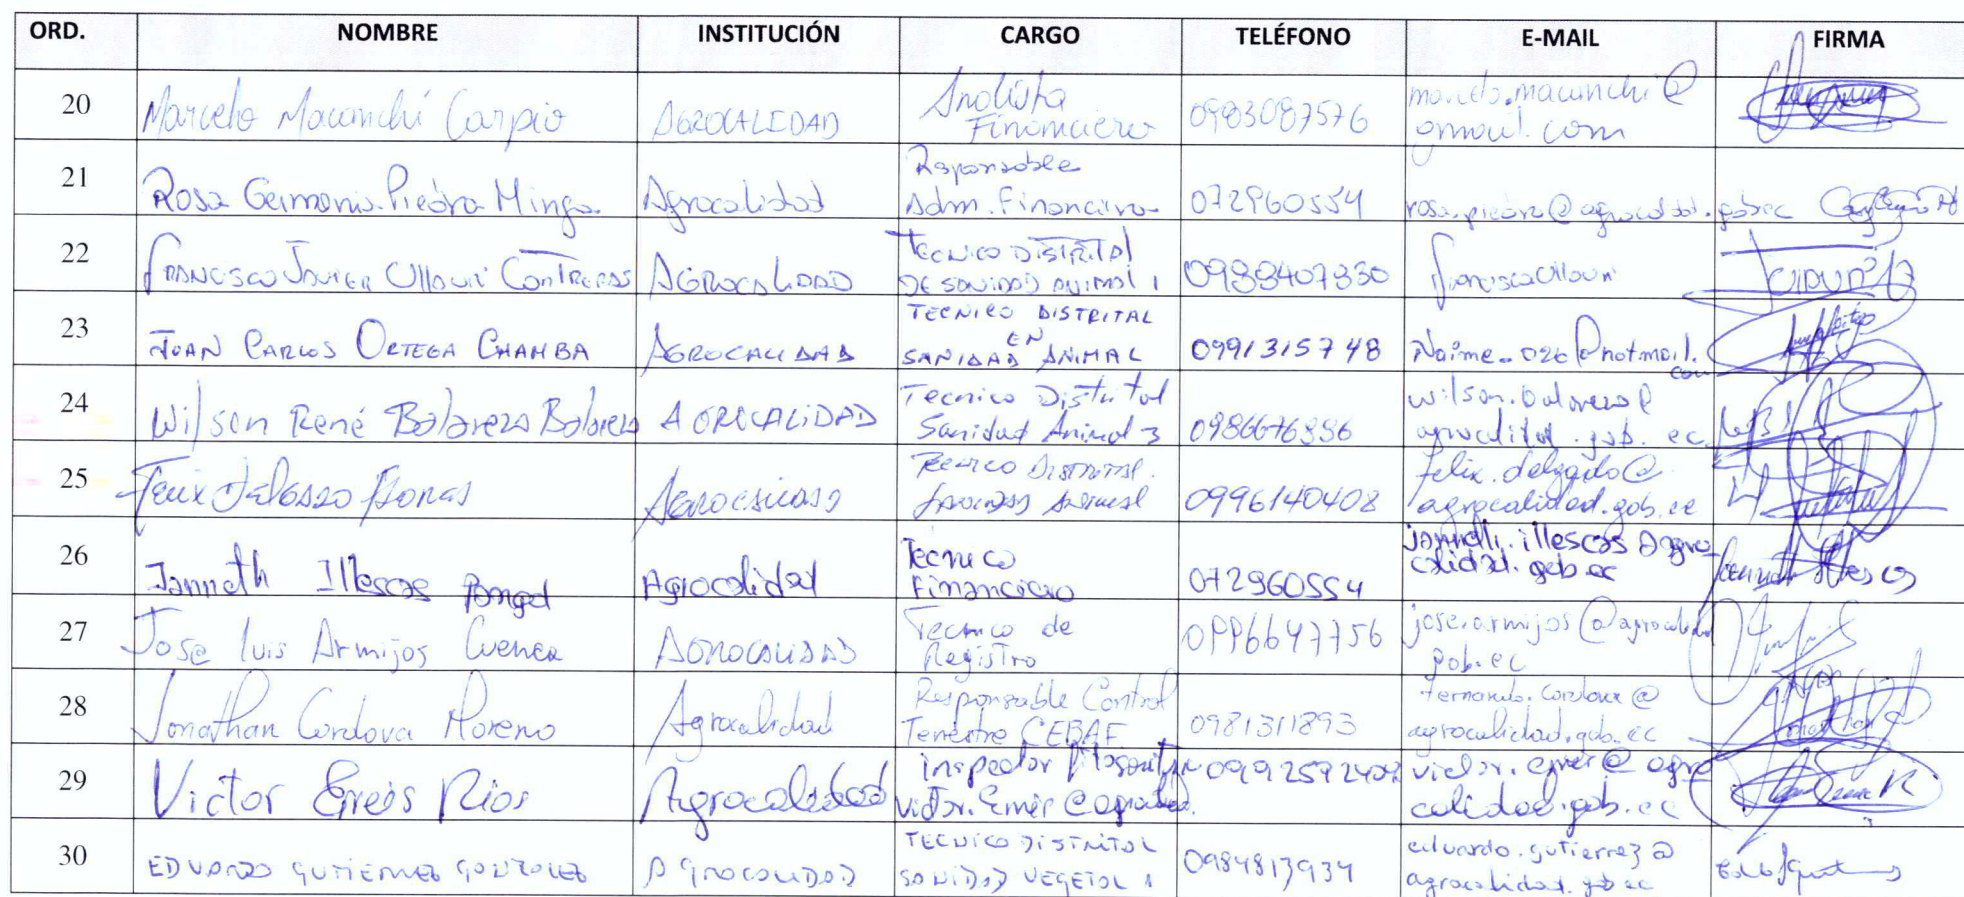 ORD. NOMBRE INSTITUCIÓN CARGO TELÉFONO E-MAIL FIRMA
20 Marcelo Macanchí Carpio AGROCALIDAD Analista Financiero 0983087576 marcelo.macanchi@gmail.com
21 Rosa Germania Piedra Minga Agrocalidad Responsable Adm. Financiera 072960554 rosa.piedra@agrocalidad.gob.ec
22 Francisco Javier Ullauri Contreras AGROCALIDAD Tecnico Distrital de Sanidad Animal 1 francisco
23 JUAN CARLOS ORTEGA CHAMBA AGROCALIDAD TECNICO DISTRITAL EN SANIDAD ANIMAL 0991315748 Naime-026@hotmail.com
24 Wilson René Balarezo Balarezo AGROCALIDAD Tecnico Distrital Sanidad Animal 3 wilson.balarezo@agrocalidad.gob.ec
25 Felix Delgado Agrocalidad Tecnico Distrital Animal 0996140408 felix.delgado@agrocalidad.gob.ec
26 Janneth Illescas Agrocalidad Tecnico Financiero 072960554 janneth.illescas@agrocalidad.gob.ec
27 Jose luis Armijos Cuenca AGROCALIDAD Tecnico de Registro 0996647756 jose.armijos@agrocalidad.gob.ec
28 Jonathan Cordova Moreno Agrocalidad Responsable Control Terrestre CEBAF 0981311893 fernando.cordova@agrocalidad.gob.ec
29 Victor Rios Agrocalidad Inspector 
30 EDUARDO GUTIERREZ GONZALEZ AGROCALIDAD TECNICO DISTRITAL SANIDAD VEGETAL 1 0984813934 eduardo.gutierrez@agrocalidad.gob.ec